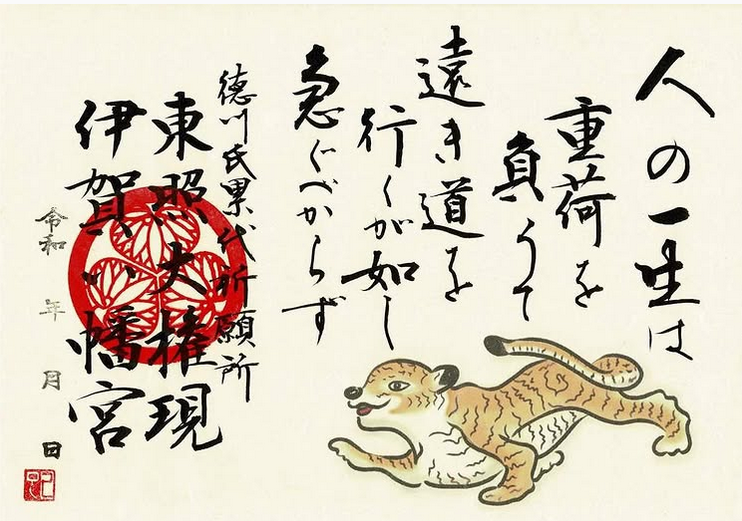 人の一生は
重荷を
負うて
遠き道を
行くが如し
急ぐべからず
徳川氏累代祈願所
東照大権現
伊賀八幡宮
令和 年 月 日